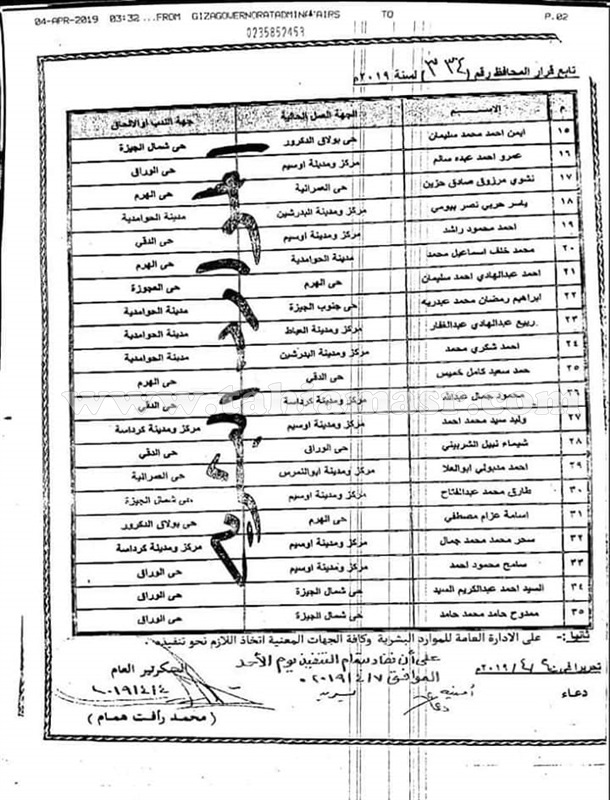 04-APR-2019 03:32 ...FROM GIZAGOVERNORATADMIN AIRS TO P.02
0235852453
تابع قرار المحافظ رقم ( ٣٣٤ ) لسنة ٢٠١٩م
م الاسم الجهة العمل الحالية جهة الندب او الالحاق
١٥ ايمن احمد محمد سليمان حى بولاق الدكرور حى شمال الجيزة
١٦ عمرو احمد عبده سالم مركز ومدينة اوسيم حى الوراق
١٧ نشوي مرزوق صادق حزين حى العمرانية حى الهرم
١٨ ياسر حربي نصر بيومي مركز ومدينة البدرشين مدينة الحوامدية
١٩ احمد محمود راشد مركز ومدينة اوسيم حى الدقي
٢٠ محمد خلف اسماعيل محمد مدينة الحوامدية حى الهرم
٢١ احمد عبدالهادي احمد سليمان حى الهرم حى العجوزة
٢٢ ابراهيم رمضان محمد عبدربه حى جنوب الجيزة مدينة الحوامدية
٢٣ ربيع عبدالهادي عبدالغفار مركز ومدينة العياط مدينة الحوامدية
٢٤ احمد شكري محمد مركز ومدينة البدرشين مدينة الحوامدية
٢٥ حمد سعيد كامل خميس حى الدقي حى الهرم
٢٦ محمود جمال عبدالله مركز ومدينة كرداسة حى الدقي
٢٧ وليد سيد محمد احمد مركز ومدينة اوسيم مركز ومدينة كرداسة
٢٨ شيماء نبيل الشربيني حى الوراق حى الدقي
٢٩ احمد مدبولي ابوالعلا مركز ومدينة ابوالنمرس حى العمرانية
٣٠ طارق محمد عبدالفتاح مركز ومدينة اوسيم حى شمال الجيزة
٣١ اسامة عزام مصطفي حى الهرم حى بولاق الدكرور
٣٢ سحر محمد محمد جمال مركز ومدينة اوسيم مركز ومدينة كرداسة
٣٣ سامح محمود احمد مركز ومدينة اوسيم حى الوراق
٣٤ السيد احمد عبدالكريم السيد حى شمال الجيزة حى الوراق
٣٥ ممدوح حامد محمد حامد حى شمال الجيزة حى الوراق
ثانيا :- على الادارة العامة للموارد البشرية وكافة الجهات المعنية اتخاذ اللازم نحو تنفيذه .
على أن التنفيذ يوم الأحد
الموافق ٢٠١٩/٤/٧
تحريرا فى ٤ / ٢٠١٩م
السكرتير العام
دعاء
أمنية
دعاء
٢٠١٩/٤/٤
( محمد رأفت همام )